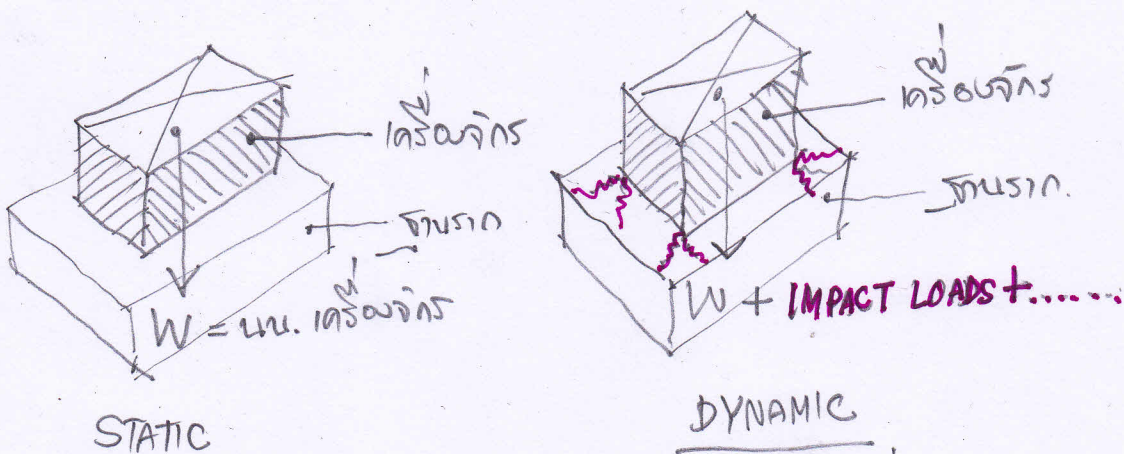 เครื่องจักร
ฐานราก
W = นน. เครื่องจักร
STATIC
เครื่องจักร
ฐานราก.
W + IMPACT LOADS +.......
DYNAMIC